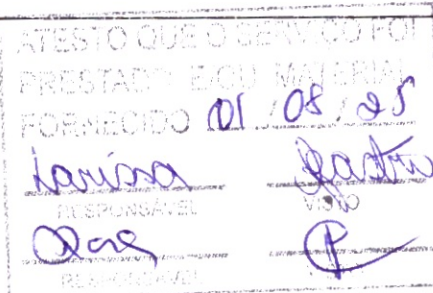 ATESTO QUE O SERVIÇO FOI
PRESTADO E/OU MATERIAL
FORNECIDO 01 / 08 / 25
Larissa
RESPONSÁVEL VISTO
RESPONSÁVEL